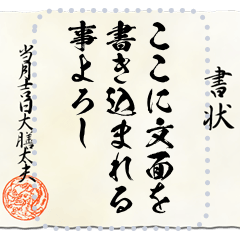 書状
ここに文面を
書き込まれる
事よろし
大膳太夫